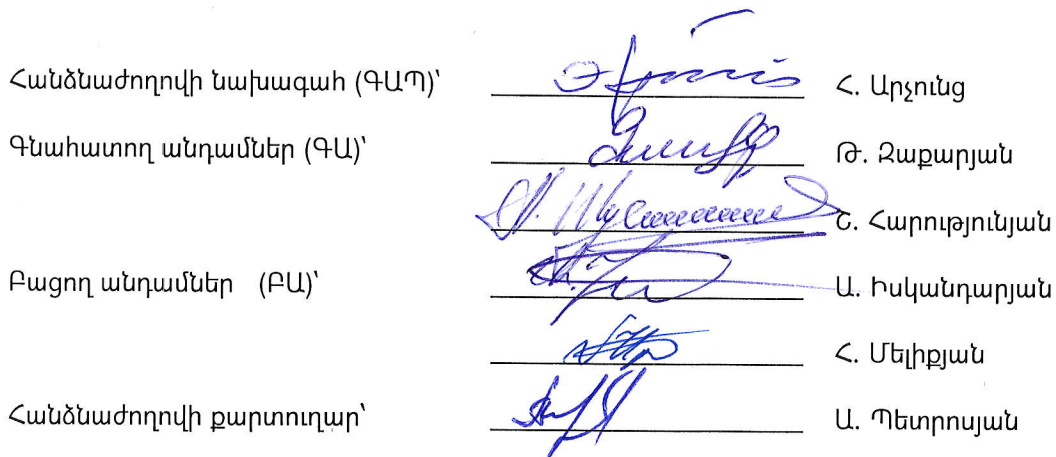 Հանձնաժողովի նախագահ (ԳԱՊ)՝ Հ. Արչունց
Գնահատող անդամներ (ԳԱ)՝ Թ. Զաքարյան
Շ. Հարությունյան
Բացող անդամներ (ԲԱ)՝ Ա. Իսկանդարյան
Հ. Մելիքյան
Հանձնաժողովի քարտուղար՝ Ա. Պետրոսյան